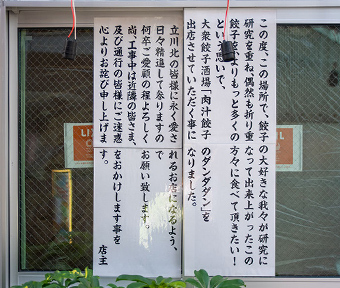 この度、この場所で、餃子の大好きな我々が研究に
研究を重ね、偶然も折り重なって出来上がったこの
餃子を、よりもっと多くの方々に食べて頂きたい！
という思いで、
大衆餃子酒場「肉汁餃子のダンダダン」を
出店させていただく事になりました。
立川北の皆様に永く愛されるお店になるよう、
日々精進して参りますので
何卒ご愛顧の程よろしくお願い致します。
尚、工事中は近隣の皆さま、
及び通行の皆様にご迷惑をおかけします事を
心よりお詫び申し上げます。
店主
LI